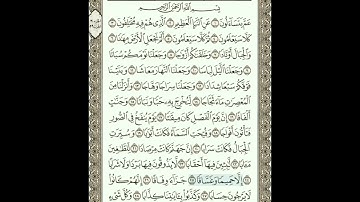 بِسْمِ اللَّهِ الرَّحْمَٰنِ الرَّحِيمِ
عَمَّ يَتَسَاءَلُونَ ۝١ عَنِ النَّبَإِ الْعَظِيمِ ۝٢ الَّذِي هُمْ فِيهِ مُخْتَلِفُونَ ۝٣
كَلَّا سَيَعْلَمُونَ ۝٤ ثُمَّ كَلَّا سَيَعْلَمُونَ ۝٥ أَلَمْ نَجْعَلِ الْأَرْضَ مِهَادًا ۝٦
وَالْجِبَالَ أَوْتَادًا ۝٧ وَخَلَقْنَاكُمْ أَزْوَاجًا ۝٨ وَجَعَلْنَا نَوْمَكُمْ سُبَاتًا ۝٩
وَجَعَلْنَا اللَّيْلَ لِبَاسًا ۝١٠ وَجَعَلْنَا النَّهَارَ مَعَاشًا ۝١١ وَبَنَيْنَا
فَوْقَكُمْ سَبْعًا شِدَادًا ۝١٢ وَجَعَلْنَا سِرَاجًا وَهَّاجًا ۝١٣ وَأَنْزَلْنَا مِنَ
الْمُعْصِرَاتِ مَاءً ثَجَّاجًا ۝١٤ لِنُخْرِجَ بِهِ حَبًّا وَنَبَاتًا ۝١٥ وَجَنَّاتٍ
أَلْفَافًا ۝١٦ إِنَّ يَوْمَ الْفَصْلِ كَانَ مِيقَاتًا ۝١٧ يَوْمَ يُنْفَخُ فِي الصُّورِ
فَتَأْتُونَ أَفْوَاجًا ۝١٨ وَفُتِحَتِ السَّمَاءُ فَكَانَتْ أَبْوَابًا ۝١٩ وَسُيِّرَتِ
الْجِبَالُ فَكَانَتْ سَرَابًا ۝٢٠ إِنَّ جَهَنَّمَ كَانَتْ مِرْصَادًا ۝٢١ لِلطَّاغِينَ
مَآبًا ۝٢٢ لَابِثِينَ فِيهَا أَحْقَابًا ۝٢٣ لَا يَذُوقُونَ فِيهَا بَرْدًا وَلَا شَرَابًا
۝٢٤ إِلَّا حَمِيمًا وَغَسَّاقًا ۝٢٥ جَزَاءً وِفَاقًا ۝٢٦ إِنَّهُمْ كَانُوا
لَا يَرْجُونَ حِسَابًا ۝٢٧ وَكَذَّبُوا بِآيَاتِنَا كِذَّابًا ۝٢٨ وَكُلَّ شَيْءٍ